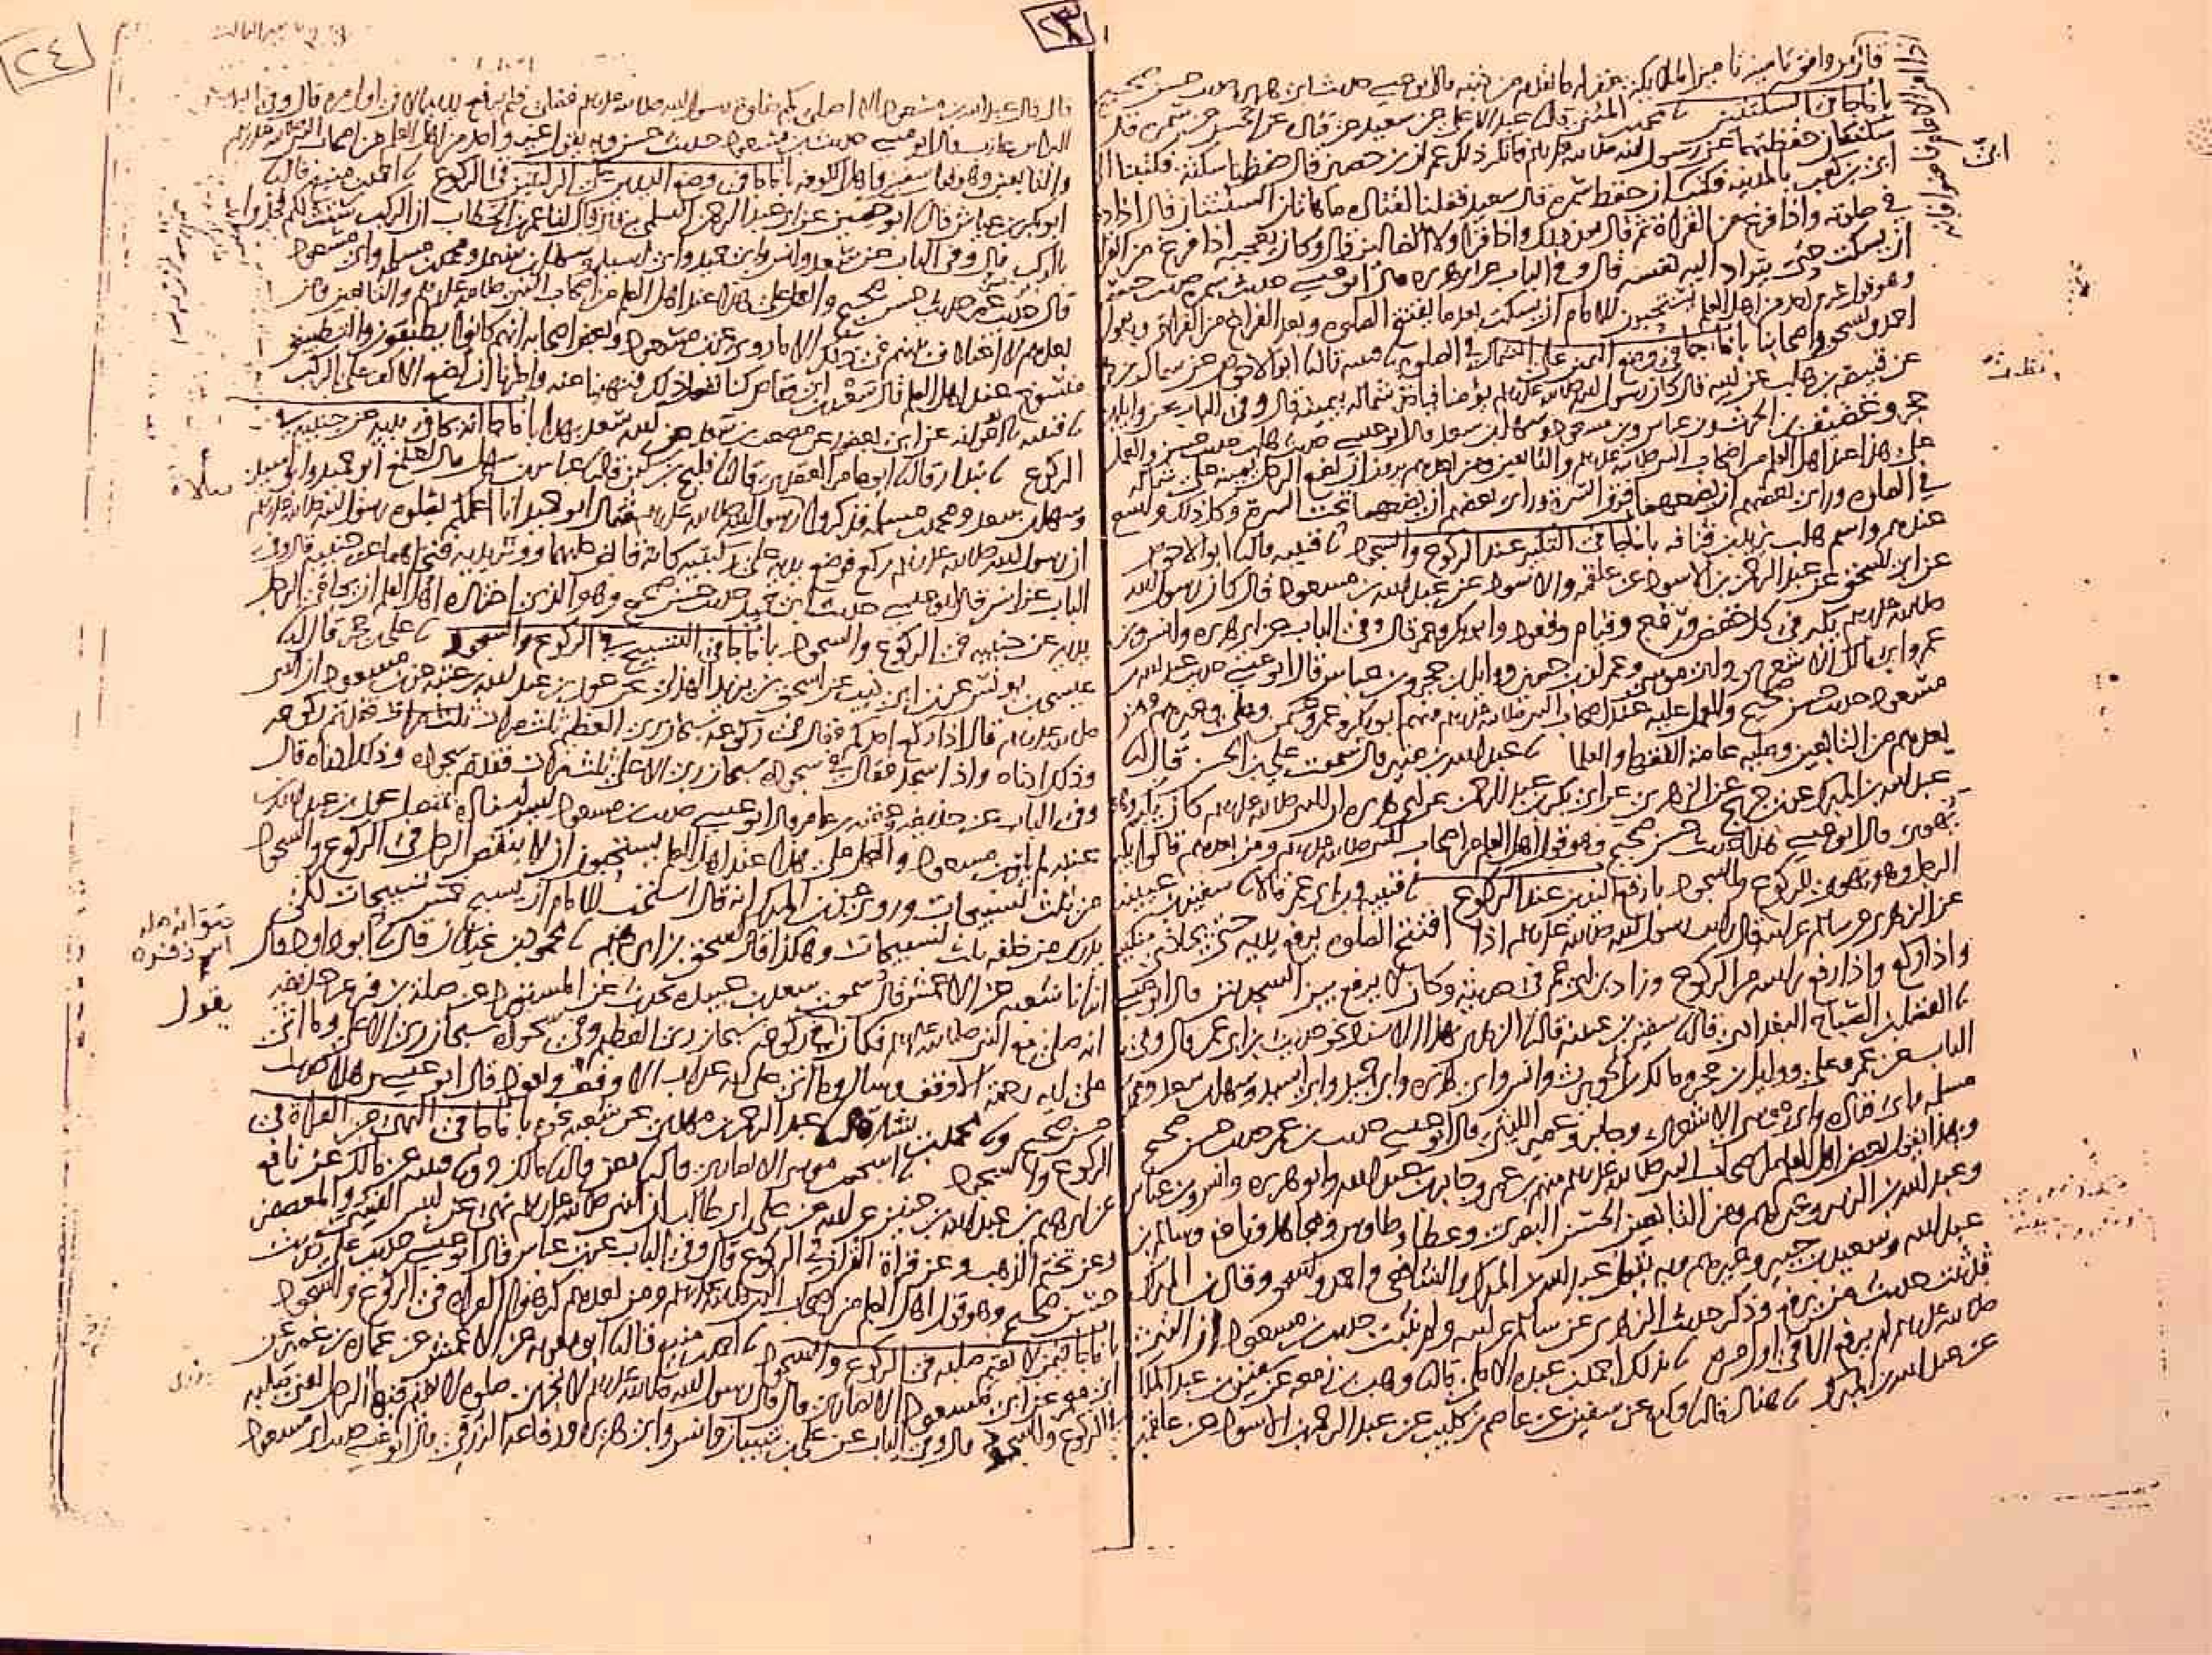 ٢٣
فانه من وافق تامينه تامين الملايكة غفر له ما تقدم من ذنبه قال ابو عيسى حديث ابي هريره حديث حسن صحيح
باب ما جا في السكتتين نا محمد بن المثنى نا عبد الاعلى عن سعيد عن قتاده عن الحسن عن سمره قال
سكتتان حفظتهما عن رسول الله صلى الله عليه وسلم فانكر ذلك عمران بن حصين قال حفظنا سكتة فكتبنا الى
ابي بن كعب بالمدينه فكتب ان حفظ سمره قال سعيد فقلنا لقتاده ما هاتان السكتتان قال اذا دخل
في صلاته واذا فرغ من القراة ثم قال بعد ذلك واذا قرا ولا الضالين قال وكان يعجبه اذا فرغ من القراة
ان يسكت حتى يتراد اليه نفسه قال وفي الباب عن ابي هريره قال ابو عيسى حديث سمره حديث حسن
وهو قول غير واحد من اهل العلم يستحبون للامام ان يسكت بعد ما يفتتح الصلوه وبعد الفراغ من القراة وبه يقول
احمد واسحق واصحابنا باب ما جا في وضع اليمين على الشمال في الصلوه نا قتيبه نا ابو الاحوص عن سماك بن حرب
عن قبيصه بن هلب عن ابيه قال كان رسول الله صلى الله عليه وسلم يؤمنا فياخذ شماله بيمينه قال وفي الباب عن وايل بن
حجر وغضيف بن الحرث وابن عباس وابن مسعود وسهل بن سعد قال ابو عيسى حديث هلب حديث حسن والعمل
على هذا عند اهل العلم من اصحاب النبي صلى الله عليه وسلم والتابعين ومن بعدهم يرون ان يضع الرجل يمينه على شماله
في الصلوه وراى بعضهم ان يضعهما فوق السرة وراى بعضهم ان يضعهما تحت السرة وكل ذلك واسع
عندهم واسم هلب يزيد بن قنافه باب ما جا في التكبير عند الركوع والسجود نا قتيبه قال نا ابو الاحوص
عن ابي اسحق عن عبد الرحمن بن الاسود عن علقمه والاسود عن عبد الله بن مسعود قال كان رسول الله
صلى الله عليه وسلم يكبر في كل خفض ورفع وقيام وقعود وابو بكر وعمر قال وفي الباب عن ابي هريره وانس وابن
عمر وابي مالك الاشعري وابي موسى وعمران بن حصين ووايل بن حجر وابن عباس قال ابو عيسى حديث عبد الله بن
مسعود حديث حسن صحيح والعمل عليه عند اصحاب النبي صلى الله عليه وسلم منهم ابو بكر وعمر وعثمن وعلي وغيرهم ومن
بعدهم من التابعين وعليه عامة الفقها والعلما نا عبد الله بن منير قال سمعت علي بن الحسن قال نا
عبد الله بن المبارك عن ابن جريج عن الزهري عن ابي بكر بن عبد الرحمن عن ابي هريره ان النبي صلى الله عليه وسلم كان يكبر وهو
يهوي قال ابو عيسى هذا حديث حسن صحيح وهو قول اهل العلم من اصحاب النبي صلى الله عليه وسلم ومن بعدهم قالوا يكبر
الرجل وهو يهوي للركوع والسجود باب رفع اليدين عند الركوع نا قتيبه وابن ابي عمر قالا نا سفين بن عيينه
عن الزهري عن سالم عن ابيه قال رايت رسول الله صلى الله عليه وسلم اذا افتتح الصلوه يرفع يديه حتى يحاذي منكبيه
واذا ركع واذا رفع راسه من الركوع وزاد ابن ابي عمر في حديثه وكان لا يرفع بين السجدتين قال ابو عيسى
نا الفضل بن الصباح البغدادي قال نا سفين بن عيينه قال نا الزهري بهذا الاسناد نحو حديث ابن ابي عمر قال وفي
الباب عن عمر وعلي ووايل بن حجر ومالك بن الحويرث وانس وابي هريره وابي حميد وابي اسيد وسهل بن سعد ومحمد بن
مسلمه وابي قتاده وابي موسى الاشعري وجابر وعمير الليثي قال ابو عيسى حديث ابن عمر حديث حسن صحيح
وبهذا يقول بعض اهل العلم من اصحاب النبي صلى الله عليه وسلم منهم ابن عمر وجابر بن عبد الله وابو هريره وانس وابن عباس
وعبد الله بن الزبير وغيرهم ومن التابعين الحسن البصري وعطا وطاوس ومجاهد ونافع وسالم بن
عبد الله وسعيد بن جبير وغيرهم وبه يقول عبد الله بن المبارك والشافعي واحمد واسحق وقال ابن المبارك
قد ثبت حديث من يرفع وذكر حديث الزهري عن سالم عن ابيه ولم يثبت حديث ابن مسعود ان النبي
صلى الله عليه وسلم لم يرفع الا في اول مره نا بذلك احمد بن عبده الاملي قال نا وهب بن زمعه عن سفين بن عبد الملك
عن عبد الله بن المبارك نا هناد قال نا وكيع عن سفين عن عاصم بن كليب عن عبد الرحمن بن الاسود عن علقمه
٢٤
قال قال عبد الله بن مسعود الا اصلي بكم صلوة رسول الله صلى الله عليه وسلم فصلى فلم يرفع يديه الا في اول مره قال وفي الباب عن
البراء بن عازب قال ابو عيسى حديث ابن مسعود حديث حسن وبه يقول غير واحد من اهل العلم من اصحاب النبي صلى الله عليه وسلم
والتابعين وهو قول سفين واهل الكوفه باب ما جا في وضع اليدين على الركبتين في الركوع نا احمد بن منيع قال نا
ابو بكر بن عياش قال نا ابو حصين عن ابي عبد الرحمن السلمي قال قال لنا عمر بن الخطاب ان الركب سنت لكم فخذوا
بالركب قال وفي الباب عن سعد وانس وابي حميد وابي اسيد وسهل بن سعد ومحمد بن مسلمه وابي مسعود
قال حديث عمر حديث حسن صحيح والعمل على هذا عند اهل العلم من اصحاب النبي صلى الله عليه وسلم والتابعين ومن
بعدهم لا اختلاف بينهم في ذلك الا ما روي عن ابن مسعود وبعض اصحابه انهم كانوا يطبقون والتطبيق
منسوخ عند اهل العلم قال سعد بن ابي وقاص كنا نفعل ذلك فنهينا عنه وامرنا ان نضع الاكف على الركب
نا قتيبه نا ابو عوانه عن ابي يعفور عن مصعب بن سعد عن ابيه سعد بهذا باب ما جا انه يجافي يديه عن جنبيه في
الركوع نا بندار قال نا ابو عامر العقدي قال نا فليح بن سليمن قال نا عباس بن سهل قال اجتمع ابو حميد وابو اسيد
وسهل بن سعد ومحمد بن مسلمه فذكروا صلاة رسول الله صلى الله عليه وسلم فقال ابو حميد انا اعلمكم بصلوه رسول الله صلى الله عليه وسلم
ان رسول الله صلى الله عليه وسلم ركع فوضع يديه على ركبتيه كانه قابض عليهما ووتر يديه فنحاهما عن جنبيه قال وفي
الباب عن انس قال ابو عيسى حديث ابي حميد حديث حسن صحيح وهو الذي اختاره اهل العلم ان يجافي الرجل
يديه عن جنبيه في الركوع والسجود باب ما جا في التسبيح في الركوع والسجود نا علي بن حجر قال نا
عيسى بن يونس عن ابن ابي ذيب عن اسحق بن يزيد الهذلي عن عون بن عبد الله بن عتبه عن ابن مسعود ان النبي
صلى الله عليه وسلم قال اذا ركع احدكم فقال في ركوعه سبحان ربي العظيم ثلث مرات فقد تم ركوعه
وذلك ادناه واذا سجد فقال في سجوده سبحان ربي الاعلى ثلث مرات فقد تم سجوده وذلك ادناه قال
وفي الباب عن حذيفه وعقبه بن عامر قال ابو عيسى حديث ابن مسعود ليس اسناده بمتصل عون بن عبد الله بن
عتبه لم يلق ابن مسعود والعمل على هذا عند اهل العلم يستحبون ان لا ينقص الرجل في الركوع والسجود
من ثلث تسبيحات وروي عن ابن المبارك انه قال استحب للامام ان يسبح خمس تسبيحات لكي
يدرك من خلفه ثلث تسبيحات وهكذا قال اسحق بن ابراهيم نا محمود بن غيلان قال نا ابو داود قال
انبانا شعبه عن الاعمش قال سمعت سعد بن عبيده يحدث عن المستورد عن صله بن زفر عن حذيفه
انه صلى مع النبي صلى الله عليه وسلم فكان يقول في ركوعه سبحان ربي العظيم وفي سجوده سبحان ربي الاعلى وما اتى
على ايه رحمة الا وقف وسال وما اتى على ايه عذاب الا وقف وتعوذ قال ابو عيسى وهذا حديث
حسن صحيح ونا محمد بن بشار قال نا عبد الرحمن بن مهدي عن شعبه نحوه باب ما جا في النهي عن القراة في
الركوع والسجود نا اسحق بن موسى الانصاري قال نا معن قال نا مالك ونا قتيبه عن مالك عن نافع
عن ابرهيم بن عبد الله بن حنين عن ابيه عن علي بن ابي طالب ان النبي صلى الله عليه وسلم نهى عن لبس القسي والمعصفر
وعن تختم الذهب وعن قراة القران في الركوع قال وفي الباب عن ابن عباس قال ابو عيسى حديث علي حديث
حسن صحيح وهو قول اهل العلم من اصحاب النبي صلى الله عليه وسلم ومن بعدهم كرهوا القراه في الركوع والسجود
باب ما جا فيمن لا يقيم صلبه في الركوع والسجود نا احمد بن منيع قال نا ابو معويه عن الاعمش عن عماره بن عمير عن
ابي معمر عن ابي مسعود الانصاري قال قال رسول الله صلى الله عليه وسلم لا تجزي صلوه لا يقيم فيها الرجل يعني صلبه
في الركوع والسجود قال وفي الباب عن علي بن شيبان وانس وابي هريره ورفاعه الزرقي قال ابو عيسى حديث ابي مسعود
يقول